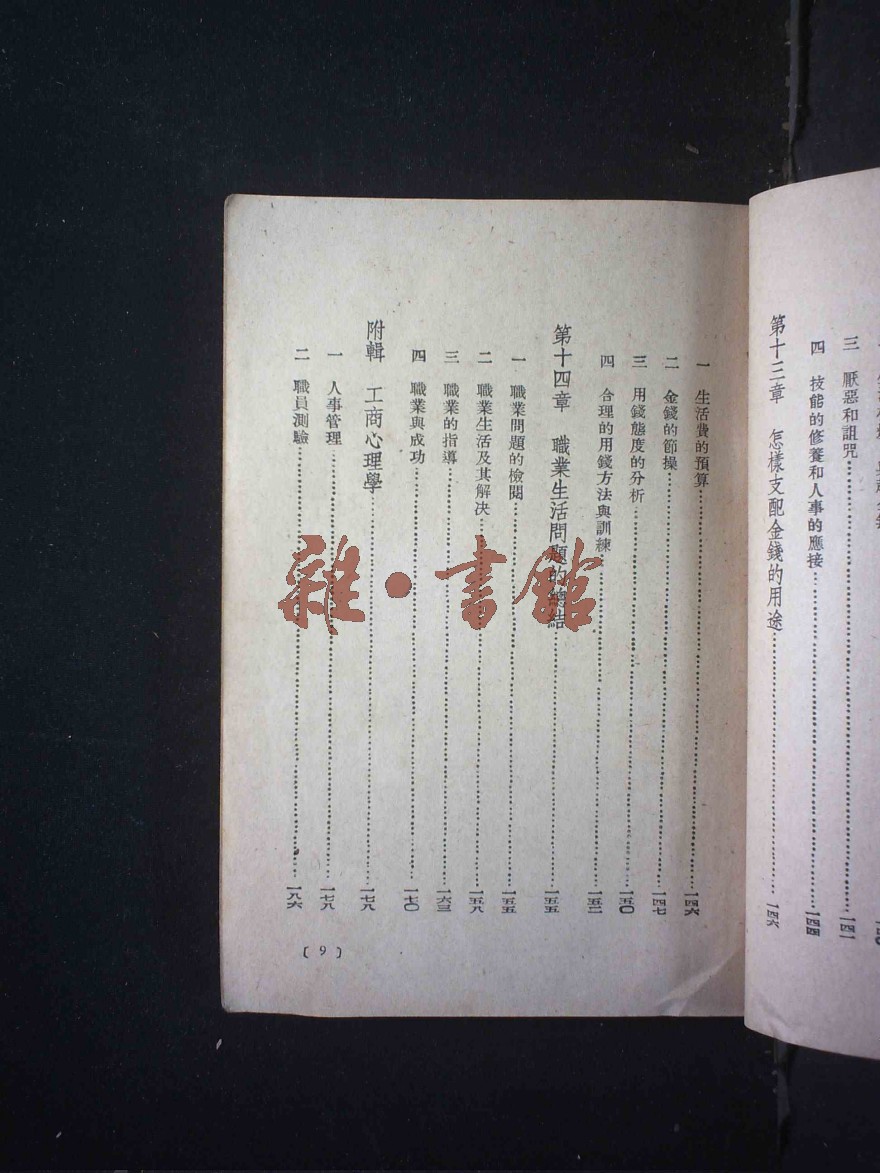 三 厭惡和詛咒……一四一
四 技能的修養和人事的應接……一四四
第十三章 怎樣支配金錢的用途……一四六
一 生活費的預算……一四六
二 金錢的節操……一四七
三 用錢態度的分析……一五〇
四 合理的用錢方法與訓練……一五二
第十四章 職業生活問題的總結……一五五
一 職業問題的檢閱……一五五
二 職業生活及其解決……一五八
三 職業的指導……一六三
四 職業與成功……一七〇
附輯 工商心理學……一七八
一 人事管理……一七八
二 職員測驗……一八六
〔9〕
雜·書館